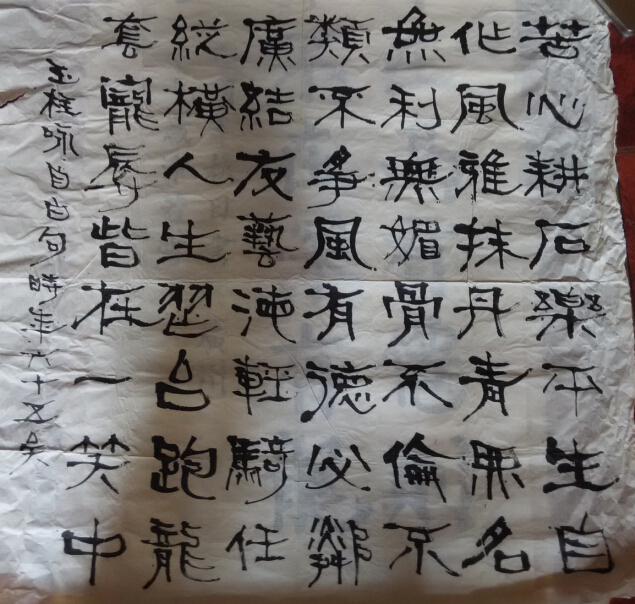 苦心耕石樂平生自
作風雅抹丹青無名
無利無媚骨不倫不
類不爭風有德必鄰
廣結友藝海輕騎任
縱橫人生舞台跑龍
套寵辱皆在一笑中
玉咏自白句時年六十五矣